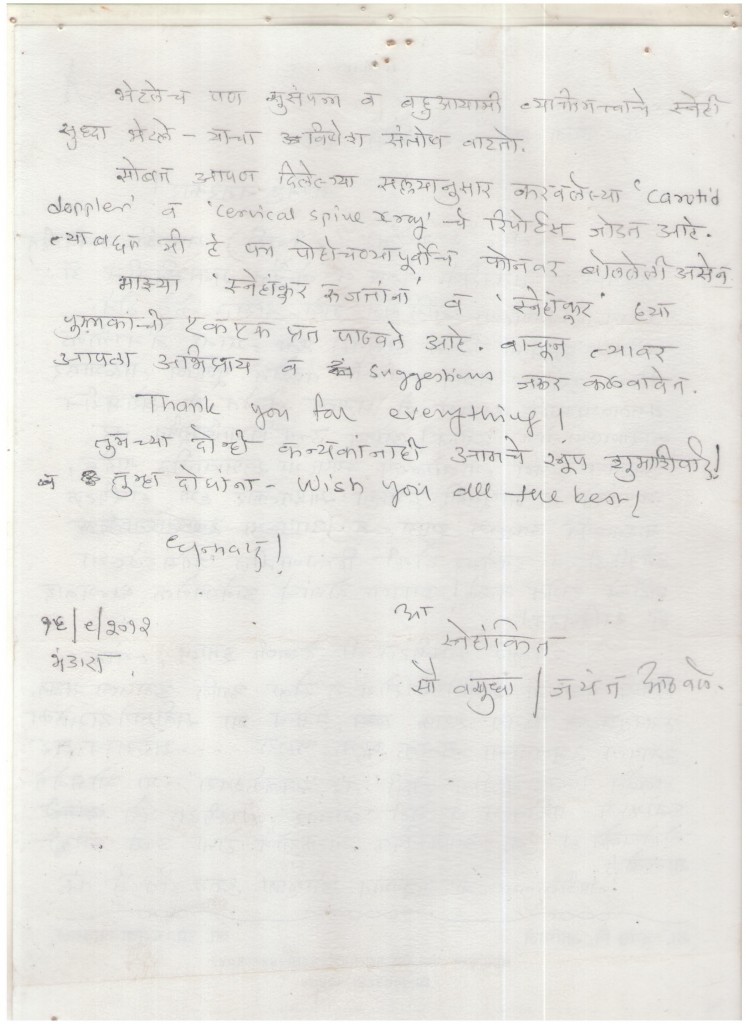 भेटलेच पण सुसंपन्न व बहुआयामी व्यक्तीमत्त्वाचे स्नेही
सुध्दा भेटले - याचा विशेष संतोष वाटतो.
सोबत आपण दिलेल्या सल्ल्यानुसार करवलेल्या 'Carotid
doppler' व 'cervical spine xray' चे रिपोर्टस् जोडत आहे.
त्याबद्दल मी हे पत्र पोहोचण्यापूर्वीच फोनवर बोललेली असेन
माझ्या 'स्नेहांकुर रुजतांना' व 'स्नेहांकूर' ह्या
पुस्तकांची एक एक प्रत पाठवते आहे. वाचून त्यावर
आपला अभिप्राय व suggestions जरूर कळवावेत.
Thank you for everything!
तुमच्या दोन्ही कन्यकांनाही आमचे खूप शुभाशिर्वाद!
व तुम्हा दोघांना - Wish you all the best!
धन्यवाद!
१६/८/२०१२
भंडारा
आ
स्नेहांकित
सौ वसुधा / जयंत आठवले.